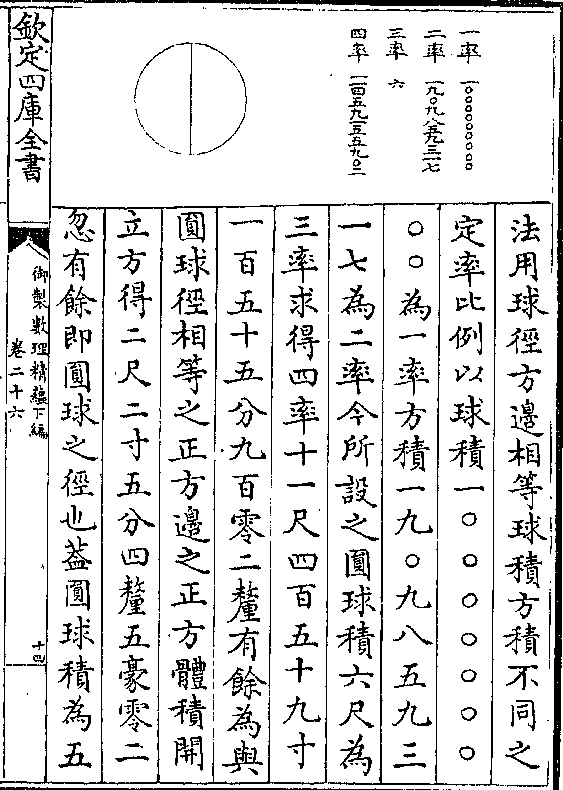 一率 一〇〇〇〇〇〇〇〇〇
二率 一九〇九八五九三一七
三率 六
四率 一一四五九一五五九〇二
法用球徑方邊相等球積方積不同之
定率比例以球積一〇〇〇〇〇〇〇
〇〇為一率方積一九〇九八五九三
一七為二率今所設之圓球積六尺為
三率求得四率十一尺四百五十九寸
一百五十五分九百零二釐有餘為與
圓球徑相等之正方邊之正方體積開
立方得二尺二寸五分四釐五豪零二
忽有餘即圓球之徑也葢圓球積為五
欽定四庫全書
御製數理精蘊下編
卷二十六
十四